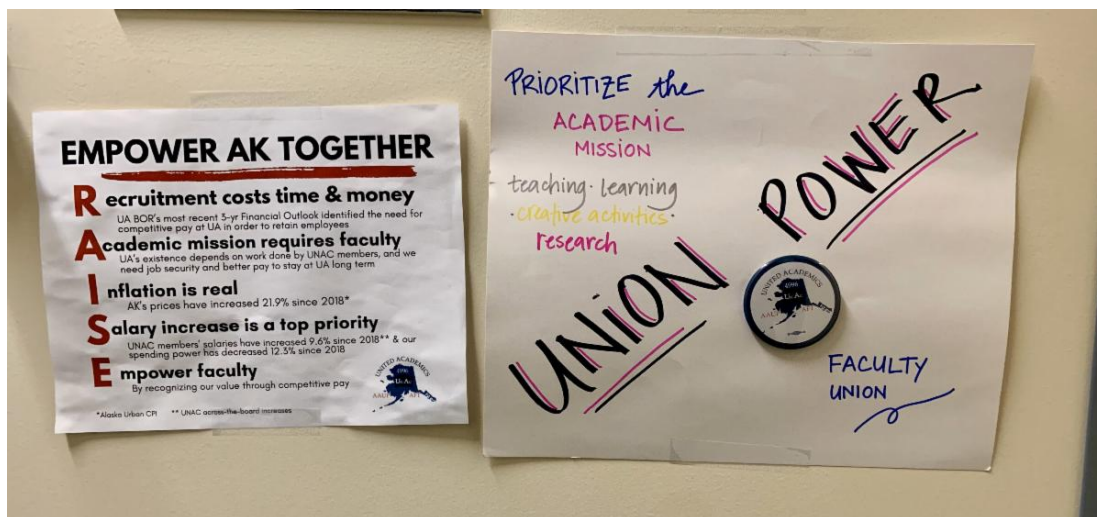 EMPOWER AK TOGETHER
Recruitment costs time & money
UA BOR's most recent 3-yr Financial Outlook identified the need for
competitive pay at UA in order to retain employees
Academic mission requires faculty
UA's existence depends on work done by UNAC members, and we
need job security and better pay to stay at UA long term
Inflation is real
AK's prices have increased 21.9% since 2018*
Salary increase is a top priority
UNAC members' salaries have increased 9.6% since 2018** & our
spending power has decreased 12.3% since 2018
Empower faculty
By recognizing our value through competitive pay
*Alaska Urban CPI ** UNAC across-the-board increases
UNITED ACADEMICS
4996
AAUP AFT
PRIORITIZE the
ACADEMIC
MISSION
teaching · learning
· creative activities ·
research
UNION POWER
UNITED ACADEMICS
4996
AAUP AFT
FACULTY
UNION